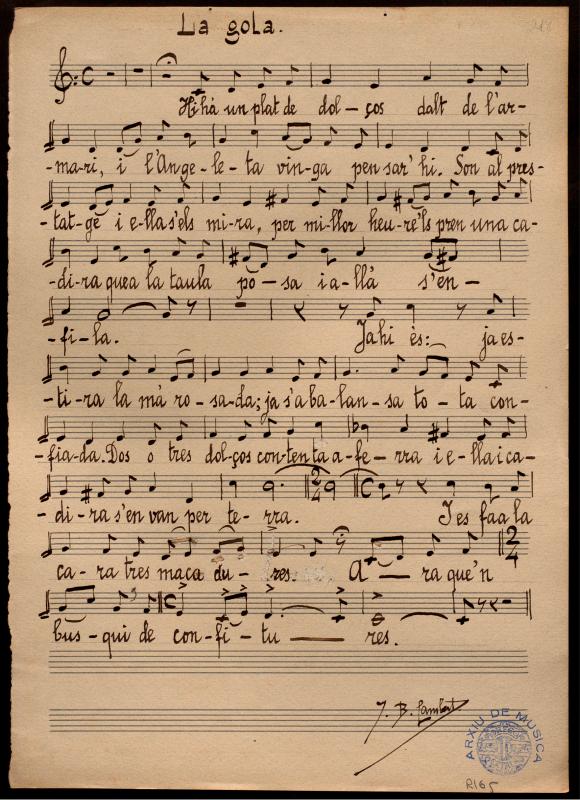 La gola.
218
Hi hà un plat de dol-ços dalt de l'ar-
-ma-ri, i l'Ange-le-ta vin-ga pen sar'hi. Son al pres-
-tat-ge i e-lla s'els mi-ra, per mi-llor heu-re'ls pren una ca-
-di-ra que a la taula po-sa i a-llà s'en-
-fi-la. Ja hi ès: ja es-
-ti-ra la mà ro-sa-da; ja s'a ba-lan-sa to-ta con-
-fia-da. Dos o tres dol-ços con-tenta a-fe-rra i e-lla i ca-
-di-ra s'en van per te-rra. I es fa a la
ca-ra tres maca du-res. A-ra que'n
bus-qui de con-fi-tu-res.
J. B. Lambert
ARXIU DE MÚSICA
R165